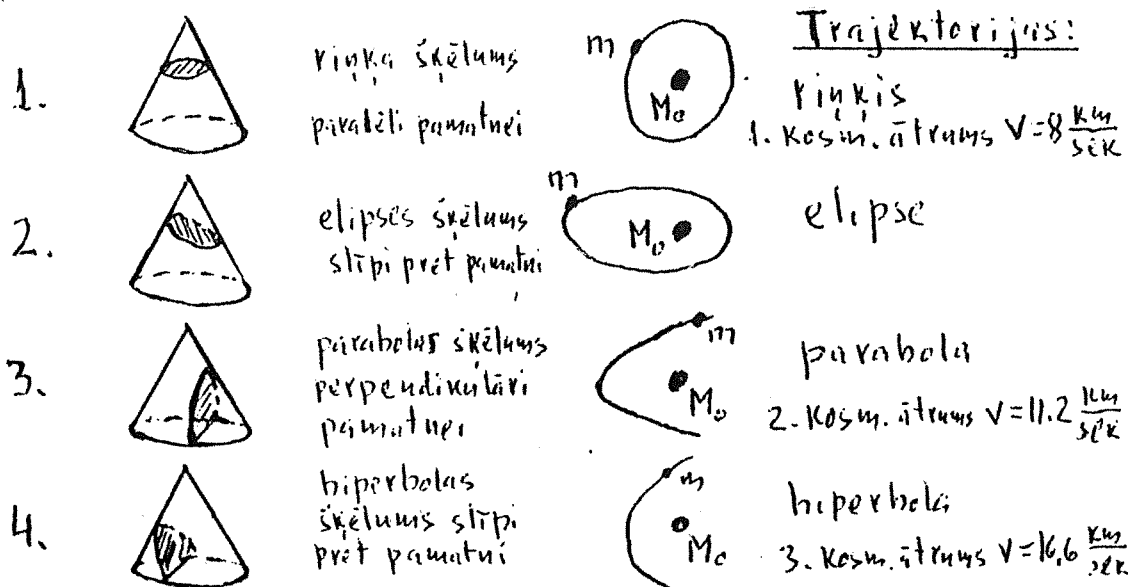 Trajektorijas:
1.
riņķa šķēlums
paralēli pamatnei
m
Mo
riņķis
1. kosm. ātrums V=8 km/sek
2.
elipses šķēlums
slīpi pret pamatni
m
Mo
elipse
3.
parabolas šķēlums
perpendikulāri
pamatnei
m
Mo
parabola
2. kosm. ātrums V=11.2 km/sek
4.
hiperbolas
šķēlums slīpi
pret pamatni
m
Mo
hiperbola
3. kosm. ātrums V=16,6 km/sek